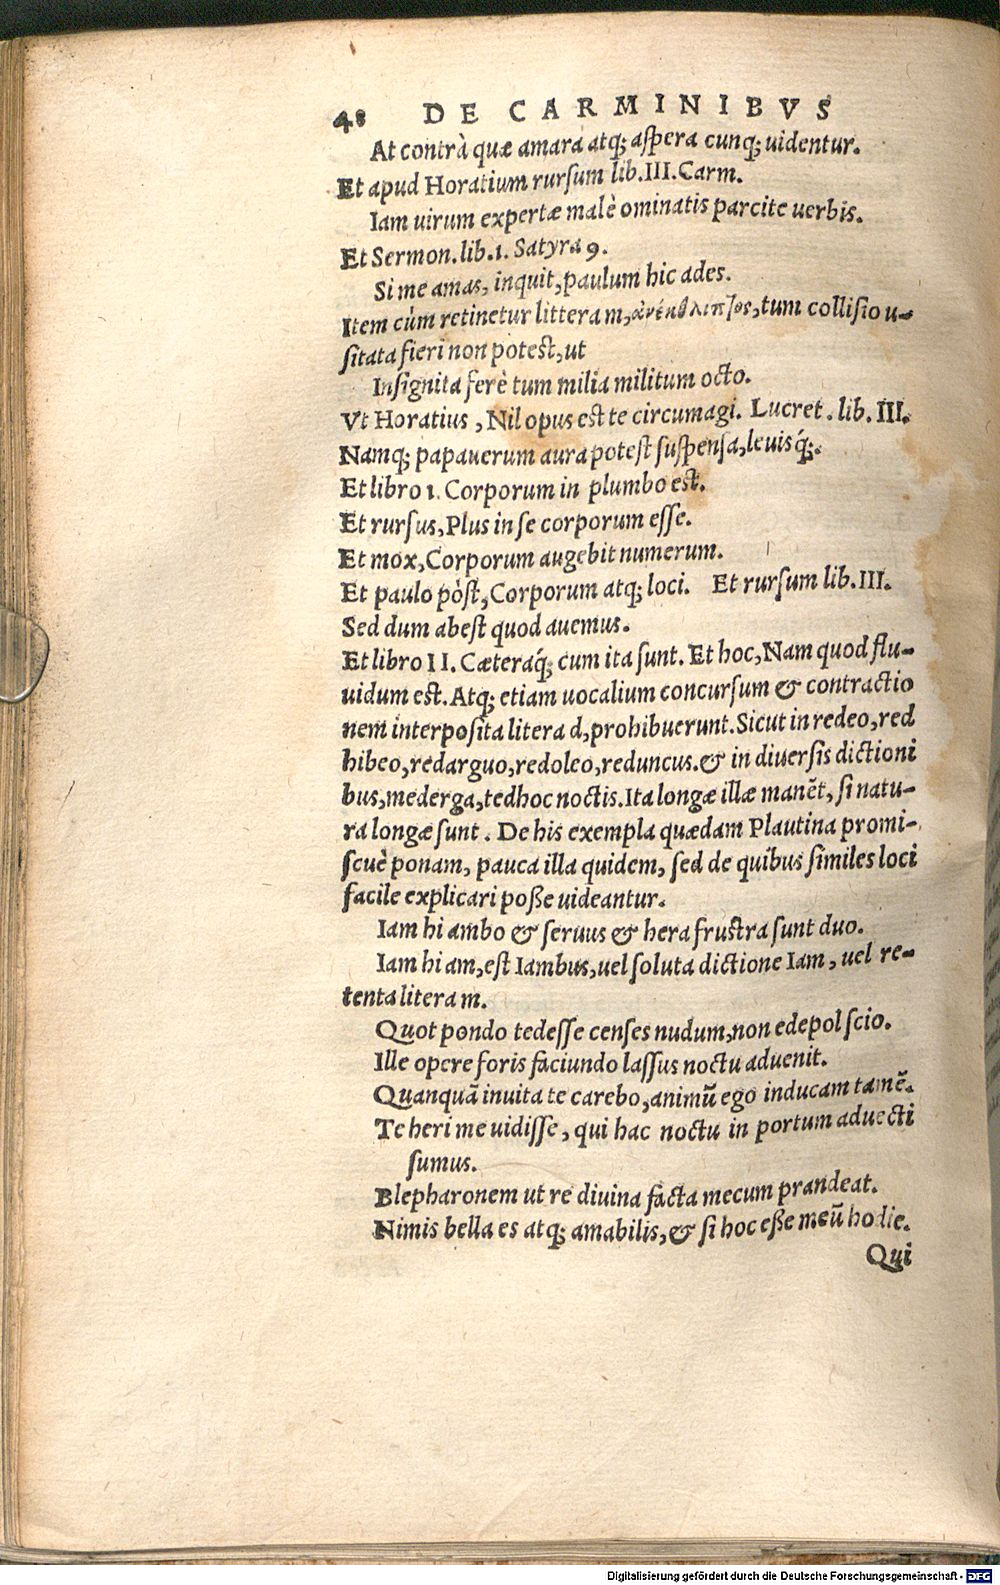 48 DE CARMINIBVS
At contrà quæ amara atq; aſpera cunq; uidentur.
Et apud Horatium rurſum lib. III. Carm.
Iam uirum expertæ malè ominatis parcite uerbis.
Et Sermon. lib. 1. Satyra 9.
Si me amas, inquit, paulum hic ades.
Item cùm retinetur littera m, tum colliſio u-
ſitata fieri non poteſt, ut
Inſignita ferè tum milia militum octo.
Vt Horatius, Nil opus eſt te circumagi. Lucret. lib. III.
Namq; papauerum aura poteſt ſuſpenſa, leuisq́;.
Et libro 1. Corporum in plumbo eſt.
Et rurſus, Plus in ſe corporum eſſe.
Et mox, Corporum augebit numerum.
Et paulo pòſt, Corporum atq; loci. Et rurſum lib. III.
Sed dum abeſt quod auemus.
Et libro II. Cæteraq́; cum ita ſunt. Et hoc, Nam quod flu-
uidum eſt. Atq; etiam uocalium concurſum & contractio
nem interpoſita litera d, prohibuerunt. Sicut in redeo, red
hibeo, redarguo, redoleo, reduncus. & in diuerſis dictioni
bus, mederga, tedhoc noctis. Ita longæ illæ manēt, ſi natu-
ra longæ ſunt. De his exempla quædam Plautina promi-
ſcuè ponam, pauca illa quidem, ſed de quibus ſimiles loci
facile explicari poſſe uideantur.
Iam hi ambo & ſeruus & hera fruſtra ſunt duo.
Iam hi am, eſt Iambus, uel ſoluta dictione Iam, uel re-
tenta litera m.
Quot pondo tedeſſe cenſes nudum, non edepol ſcio.
Ille opere foris faciundo laſſus noctu aduenit.
Quanquā inuita te carebo, animū ego inducam tamē.
Te heri me uidiſſe, qui hac noctu in portum aduecti
ſumus.
Blepharonem ut re diuina facta mecum prandeat.
Nimis bella es atq; amabilis, & ſi hoc eſſe meū hodie.
Qui
Digitalisierung gefördert durch die Deutsche Forschungsgemeinschaft - DFG